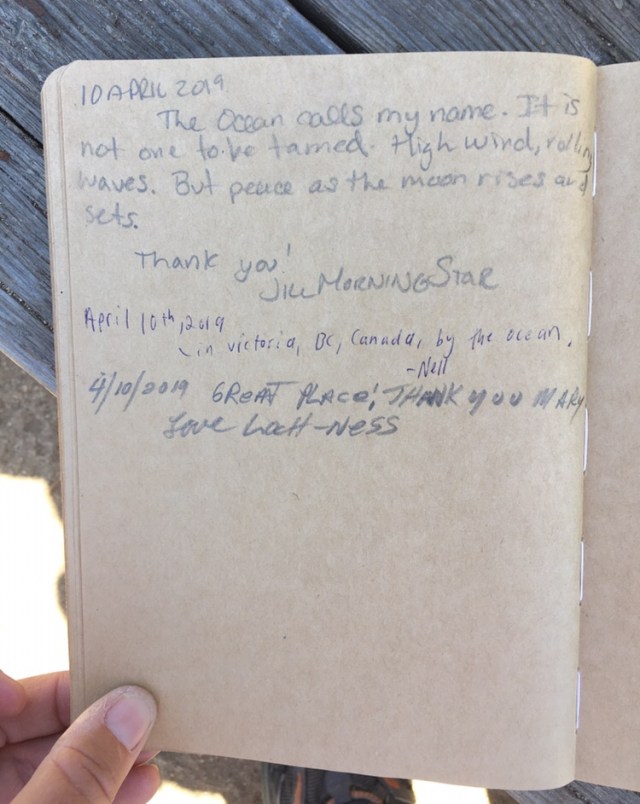 10 APRIL 2019
The Ocean calls my name. It is
not one to be tamed. High wind, rolling
waves. But peace as the moon rises and
sets.
Thank you!
Jill MorningStar
April 10th, 2019
in victoria, BC, Canada, by the ocean.
-Nell
4/10/2019 GREAT PLACE! THANK YOU MARY
Love Loch-Ness